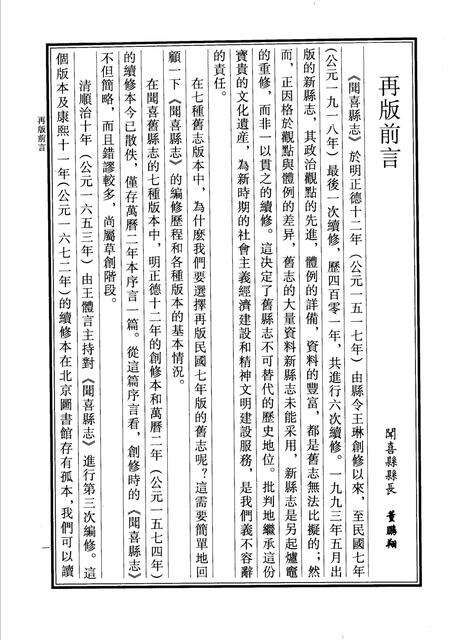 再版前言
聞喜縣縣長 董鵬翔
《聞喜縣志》於明正德十二年（公元一五一七年）由縣令王琳創修以來，至民國七年
（公元一九一八年）最後一次續修，歷四百零一年，共進行六次續修。一九九三年五月出
版的新縣志，其政治觀點的先進，體例的詳備，資料的豐富，都是舊志無法比擬的；然
而，正因格於觀點與體例的差異，舊志的大量資料新縣志未能采用，新縣志是另起爐竈
的重修，而非一以貫之的續修。這決定了舊縣志不可替代的歷史地位。批判地繼承這份
寳貴的文化遺産，為新時期的社會主義經濟建設和精神文明建設服務，是我們義不容辭
的責任。
在七種舊志版本中，為什麽我們要選擇再版民國七年版的舊志呢？這需要簡單地回
顧一下《聞喜縣志》的編修歷程和各種版本的基本情況。
在聞喜舊縣志的七種版本中，明正德十二年的創修本和萬曆二年（公元一五七四年）
的續修本今已散佚，僅存萬曆二年本序言一篇。從這篇序言看，創修時的《聞喜縣志》
不但簡略，而且錯謬較多，尚屬草創階段。
清順治十年（公元一六五三年）由王體言主持對《聞喜縣志》進行第三次編修。這
個版本及康熙十一年（公元一六七二年）的續修本在北京圖書館存有孤本，我們可以讀
再版前言
一